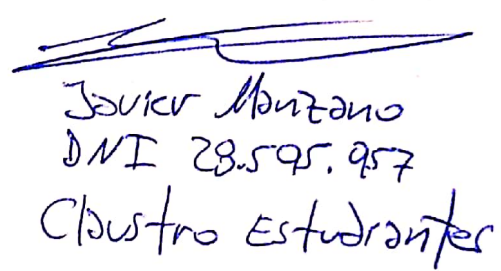 Javier Manzano
DNI 28.595.957
Claustro Estudiantes